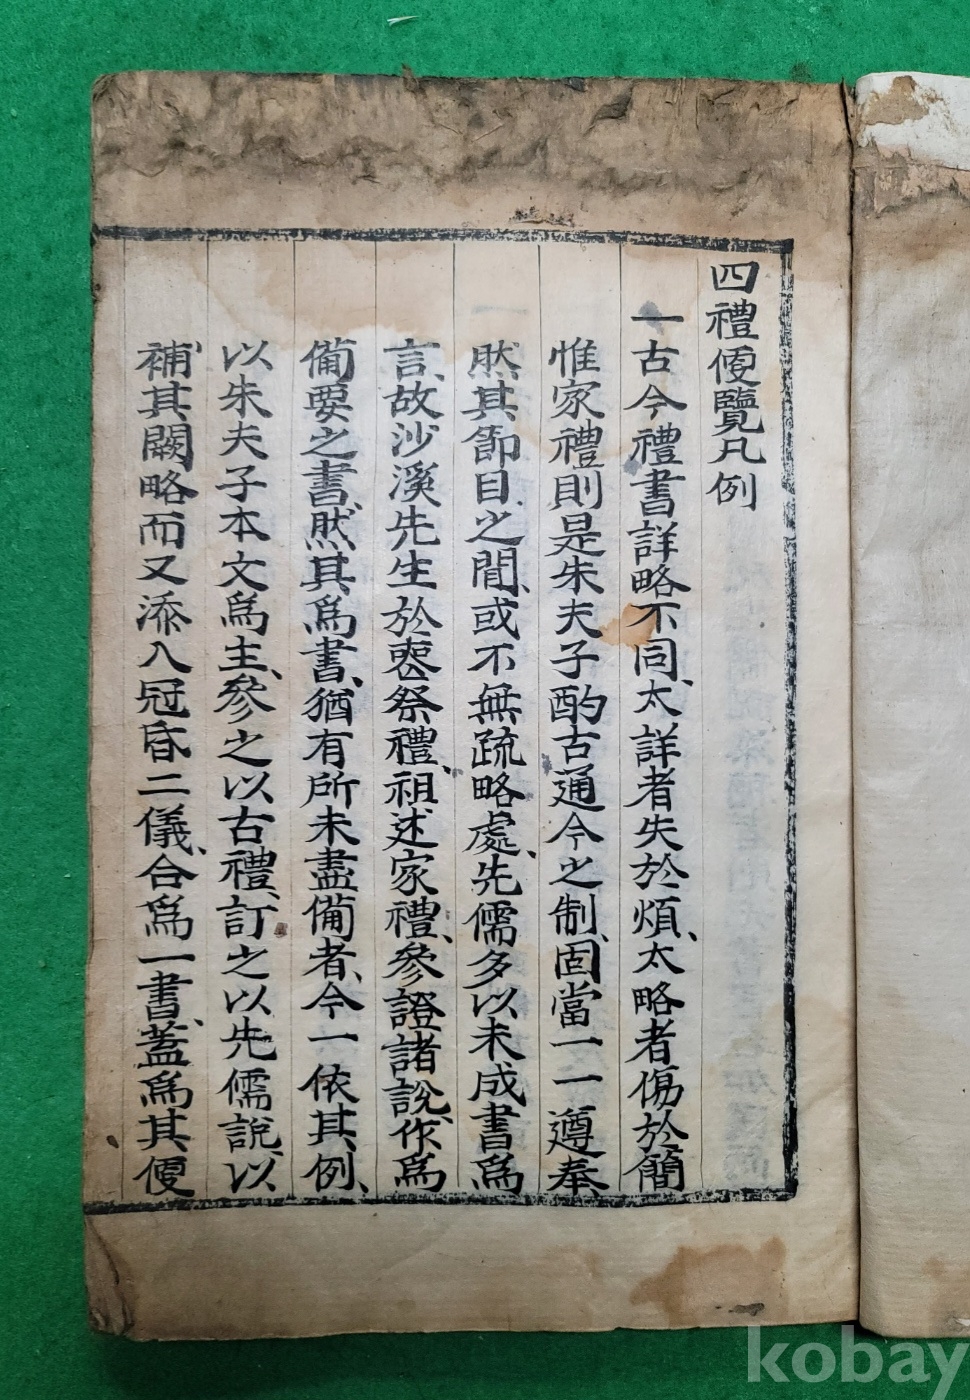 四禮便覽凡例
一古今禮書詳略不同、太詳者失於煩、太略者傷於簡
惟家禮則是朱夫子酌古通今之制、固當一一遵奉
然其節目、之間、或不無疏略處、先儒多以未成書爲
言、故沙溪先生於喪祭禮、祖述家禮、參證諸說、作爲
備要之書、然其爲書、猶有所未盡備者、今一依其例、
以朱夫子本文爲主、參之以古禮、訂之以先儒說、以
補其闕略而又添入冠昏二儀、合爲一書、蓋爲其便
kobay